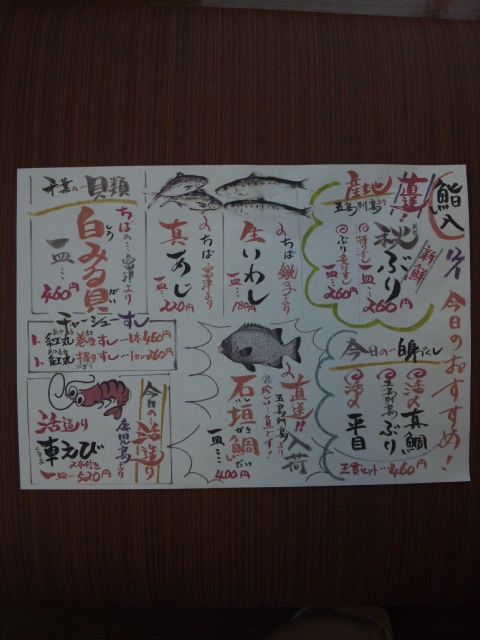 鮨人
今日のおすすめ!
新鮮
産地直送!
五島列島より
秋ぶり
一皿…260円
一皿…260円
今日の…白身づくし
活〆真鯛
五島列島ぶり
活〆平目
三貫セット…460円
ちば銚子より
生いわし
一皿…180円
ちば富津より
真あじ
一皿…220円
直送!!入荷
五島列島より
珍しい魚です!
石垣鯛
いしがきだい
一皿…400円
千葉の…貝類
ちばの…富津より
白みる貝
しろ
がい
一皿…460円
チャーシューすし
1. 紅丸巻きすし…1本460円
1. 紅丸握りすし…1カン260円
今日の…活造り
鹿児島より
活造り
車えび
くるま
2本付き
一皿…520円